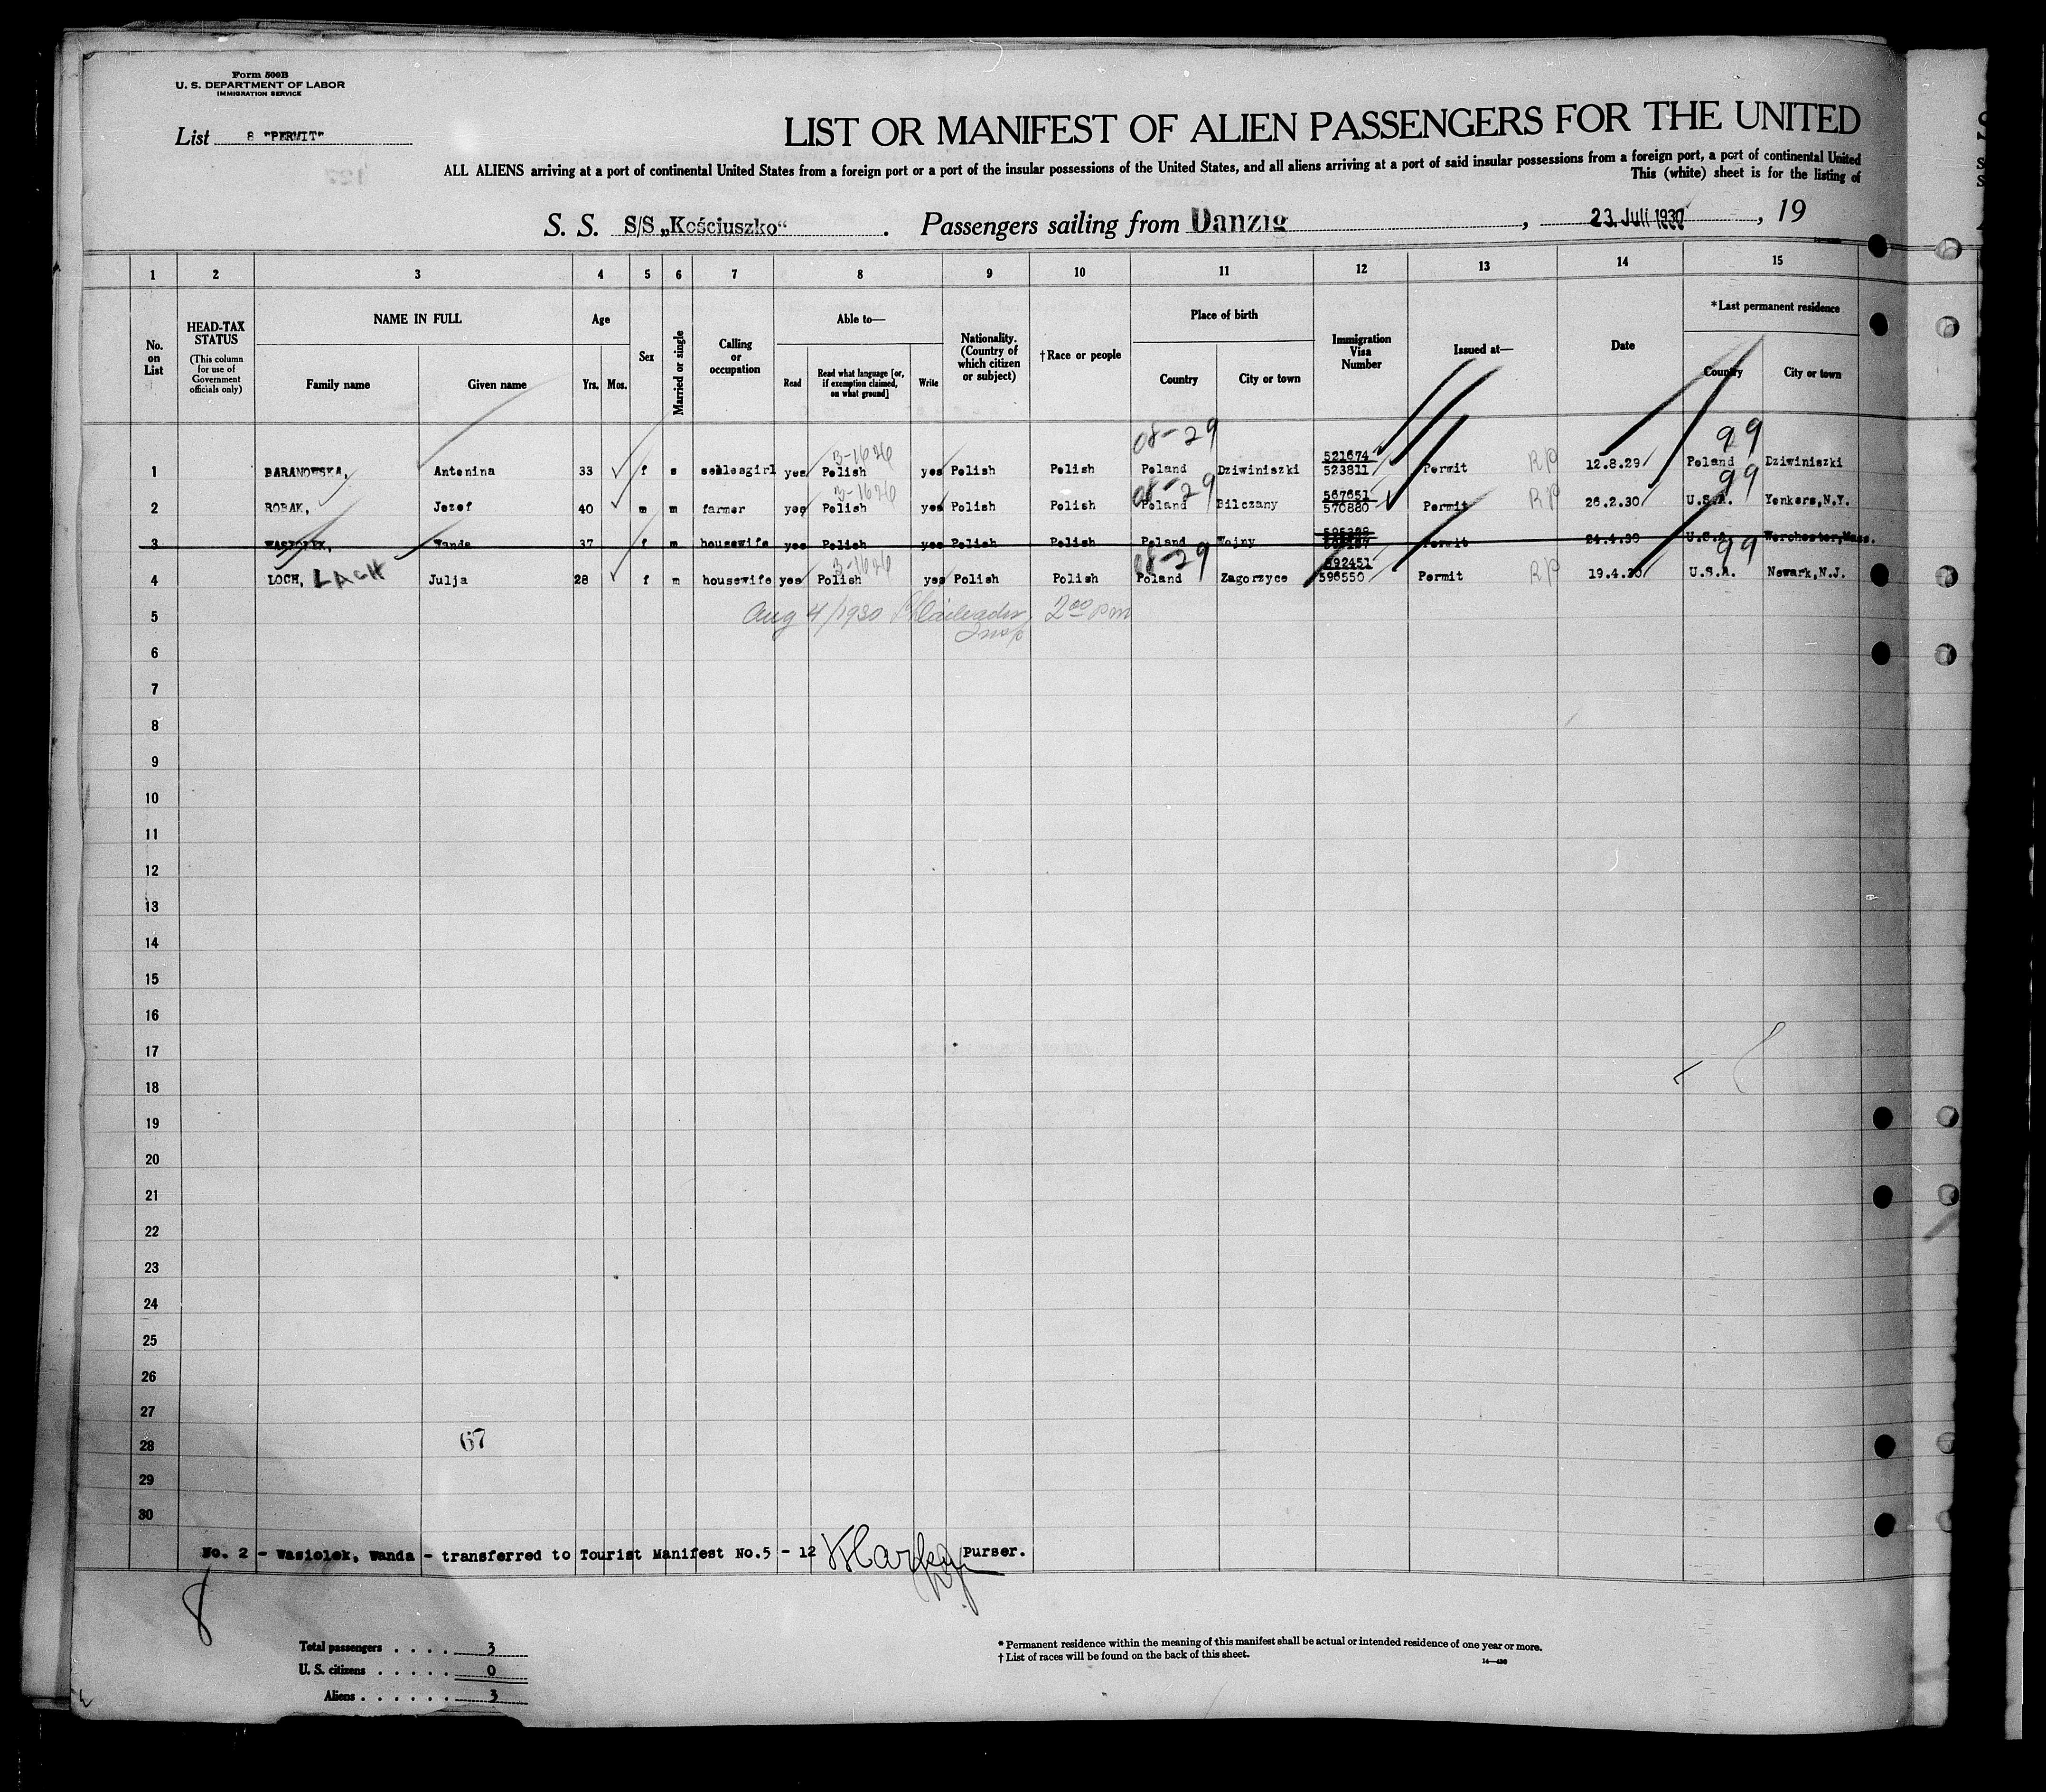 Form 500B
U. S. DEPARTMENT OF LABOR
IMMIGRATION SERVICE
List 8 "PERMIT"
LIST OR MANIFEST OF ALIEN PASSENGERS FOR THE UNITED
ALL ALIENS arriving at a port of continental United States from a foreign port or a port of the insular possessions of the United States, and all aliens arriving at a port of said insular possessions from a foreign port, a port of continental United
This (white) sheet is for the listing of
S. S. S/S „Kościuszko“ . Passengers sailing from Danzig , 23. Juli 1930 , 19
1 2 3 4 5 6 7 8 9 10 11 12 13 14 15
No. on List
HEAD-TAX STATUS (This column for use of Government officials only)
NAME IN FULL
Family name Given name
Age
Yrs. Mos.
Sex
Married or single
Calling or occupation
Able to—
Read Read what language [or, if exemption claimed, on what ground] Write
Nationality. (Country of which citizen or subject)
† Race or people
Place of birth
Country City or town
Immigration Visa Number
Issued at—
Date
* Last permanent residence
Country City or town
08-29 99
3-1626 521674
1 BARANOWSKA, Antonina 33 f s sellesgirl yes Polish yes Polish Polish Poland Dziwiniszki 523811 Permit RP 12.8.29 Poland Dziwiniszki
3-1626 08-29 567651 99
2 ROBAK, Jozef 40 m m farmer yes Polish yes Polish Polish Poland Bilczany 570880 Permit RP 26.2.30 U.S.A. Yonkers,N.Y.
3 WASIOLEK, Wanda 37 f m housewife yes Polish yes Polish Polish Poland Wojny Permit U.S.A. Worchester,Mass.
3-1626 08-29 592451 99
4 LOCH, LACH Julja 28 f m housewife yes Polish yes Polish Polish Poland Zagorzyce 596550 Permit RP 19.4.30 U.S.A. Newark,N.J.
5 Aug 4/1930 2 00 pm
Insp
6
7
8
9
10
11
12
13
14
15
16
17
18
19
20
21
22
23
24
25
26
27
28 67
29
30
No. 2 - Wasiolek, Wanda - transferred to Tourist Manifest No.5 - 12 Purser.
8
Total passengers . . . . 3
U. S. citizens . . . . . 0
Aliens . . . . . . 3
* Permanent residence within the meaning of this manifest shall be actual or intended residence of one year or more.
† List of races will be found on the back of this sheet.
14—430